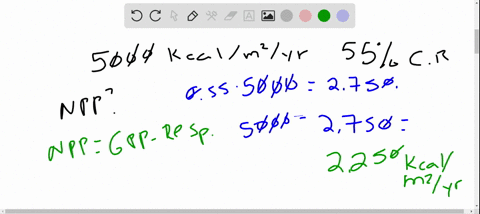 5000 Kcal/m²/yr 55% C.R
0.55·5000 = 2.750.
NPP?
5000 - 2.750 =
NPP = GPP-Resp.
2250 Kcal/m²/yr